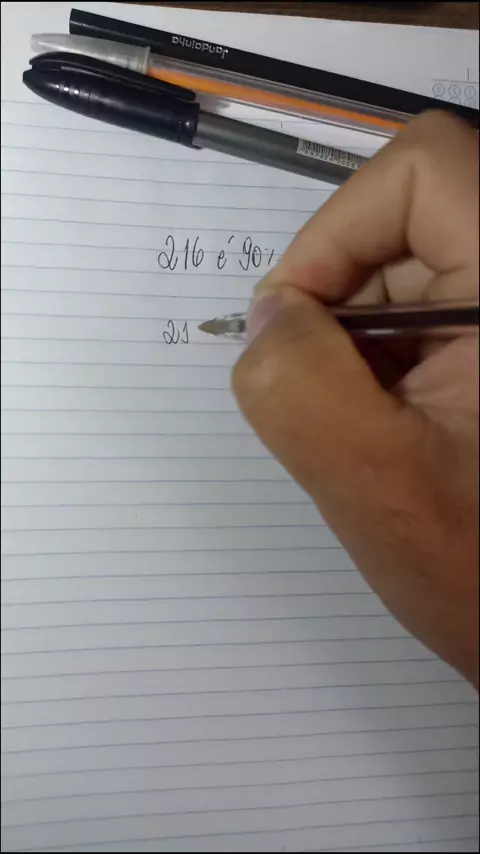 Jandainha
216 é 90%
21